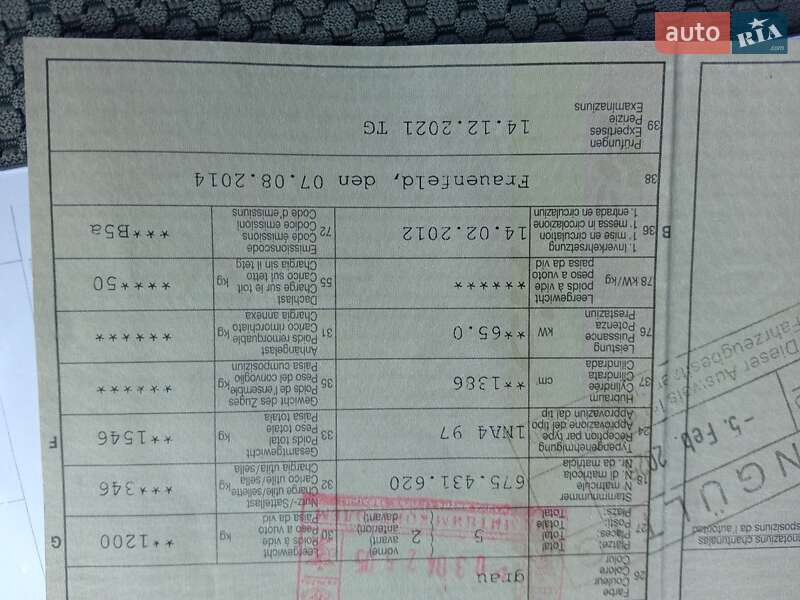 auto RIA .com
26 Farbe
Couleur
Colore
Color
grau
27 Plätze:
Places:
Posti:
Plazs:
Total
Total
Totale
Total
5
vorne)
avant)
anteriori)
davant)
2
30 Leergewicht
Poids à vide
Peso a vuoto
Paisa da vid
kg
**1200
G
18 Stammnummer
N° matricule
N. di matricola
Nr. da matricla
675.431.620
32 Nutz-/Sattellast
Charge utile/sellette
Carico utile/sella
Chargia utila/sella
kg
***346
24 Typengenehmigung
Réception par type
Approvazione del tipo
Approvaziun dal tip
1NA4 97
33 Gesamtgewicht
Poids total
Peso totale
Paisa totala
kg
**1546
F
37 Hubraum
Cylindrée
Cilindrata
Cilindrada
cm³
**1386
35 Gewicht des Zuges
Poids de l'ensemble
Peso del convoglio
Paisa cumposiziun
kg
******
76 Leistung
Puissance
Potenza
Prestaziun
kW
**65.0
31 Anhängelast
Poids remorquable
Carico rimorchiato
Chargia annexa
kg
******
78 kW/kg
Leergewicht
poids à vide
peso a vuoto
paisa da vid
*******
55 Dachlast
Charge sur le toit
Carico sul tetto
Chargia sin il tetg
kg
*****50
B
36 1. Inverkehrsetzung
1re mise en circulation
1. messa in circolazione
1. entrada en circulaziun
14.02.2012
72 Emissionscode
Code émissions
Codice emissioni
Code d'emissiuns
***B5a
38
Frauenfeld, den 07.08.2014
39 Prüfungen
Expertises
Perizie
Examinaziuns
14.12.2021 TG
Dieser Ausweis
Fahrzeugbes
-5. Feb. 20
UNGÜLT